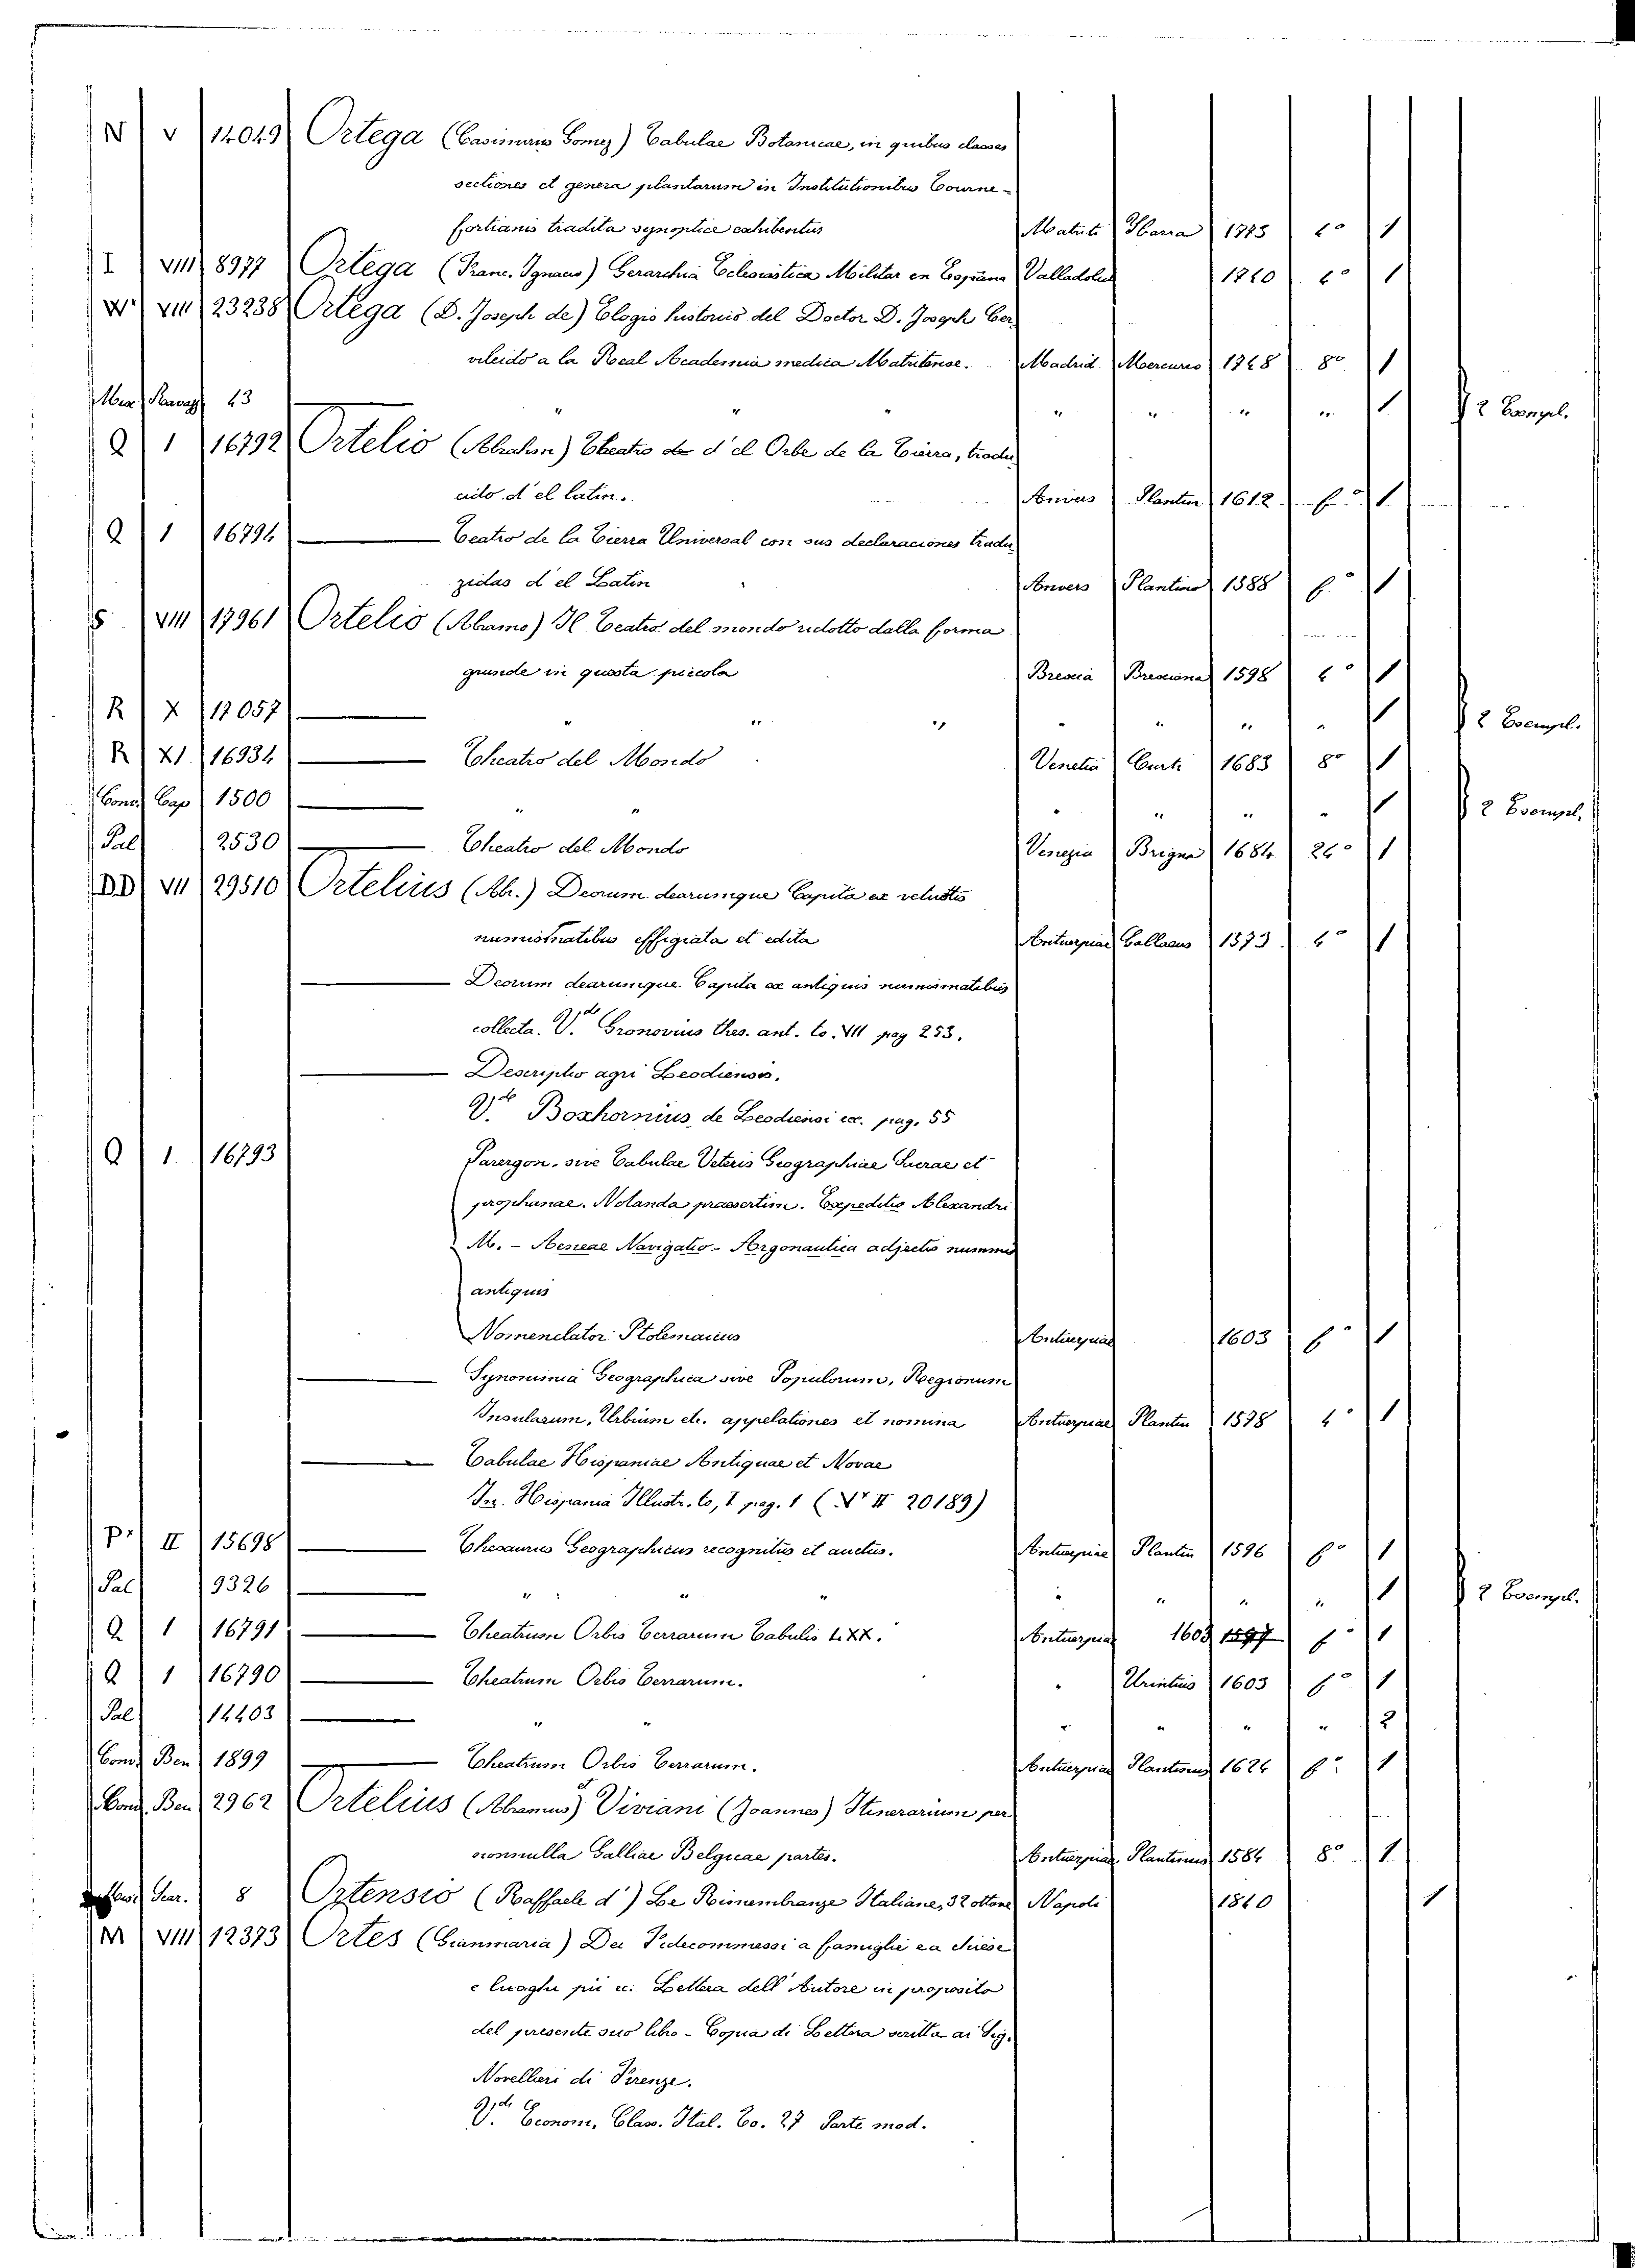 N V 14049 Ortega (Casimirio Gomez) Tabulae Botanicae, in quibus classes
sectiones et genera plantarum in Institutionibus Tourne-
fortianis tradita synoptice exhibentus Matriti Ibarra 1773 4º 1
I VIII 8977 Ortega (Franc. Ignacio) Gerarchia Eclesiastica Militar en Espana Valladolid 1740 4º 1
Wr VIII 23238 Ortega (D. Joseph de) Elogio historis del Doctor D. Joseph Cer
vileido a la Real Academia medica Matritense. Madrid Mercurio 1748 8º 1
Mia Ravag 43 " " " " " " " 1 2 Esempl.
Q 1 16792 Ortelio (Abrahm) Theatro de d'el Orbe de la Tierra, tradu
cido d'el latin. Anvers Plantin 1612 f.º 1
Q 1 16794 Teatro de la Tierra Universal con sus declaraciones tradu
zidas d'el Latin Anvers Plantino 1588 f.º 1
S VIII 17961 Ortelio (Abramo) Il Teatro del mondo ridotto dalla forma
grande in questa piccola Brescia Bresciana 1598 4º 1
R X 17057 " " " " " " " 1 2 Esempl.
R XI 16934 Theatro del Mondo Venetia Curti 1683 8º 1
Cons. Cap 1500 " " " " " " 1 2 Esempl.
Pal 2530 Theatro del Mondo Venezia Brigna 1684 24º 1
DD VII 29510 Ortelius (Ab.) Deorum dearumque Capita ex vetustis
numismatibus effigiata et edita Antuerpiae Gallaeus 1573 4º 1
Deorum dearumque Capita ex antiquis numismatibus
collecta. V.de Gronovius thes. ant. to. VII pag 253.
Descriptio agri Leodiensis.
V.de Boxhornius, de Leodiensi ec. pag. 55
Q 1 16793 Parergon, sive Tabulae Veteris Geographiae Sacrae et
prophanae. Notanda praesertim. Expeditio Alexandri
M. - Aeneae Navigatio - Argonautica adjectis nummis
antiquis
Nomenclator Ptolemaicus Antuerpiae 1603 fº 1
Synonimia Geographica sive Populorum, Regionum
Insularum, Urbium etc. appelationes et nomina Antuerpiae Plantin 1578 4º 1
Tabulae Hispaniae Antiquae et Novae
In. Hispania Illustr. to, I pag. 1 (Vr II 20189)
Pr II 15698 Thesaurus Geographicus recognitus et auctus. Antuerpiae Plantin 1596 fº 1
Pal 9326 " " " " " " " 1 2 Esempl.
Q 1 16791 Theatrum Orbis Terrarum Tabulis LXX. Antuerpiae 1603 1597 fº 1
Q 1 16790 Theatrum Orbis Terrarum. " Urintius 1603 fº 1
Pal 14403 " " " " " " 2
Cons. Ben 1899 Theatrum Orbis Terrarum. Antuerpiae Plantinus 1624 fº 1
Cons. Ben 2962 Ortelius (Abramus) et Viviani (Joannes) Itinerarium per
nonnulla Galliae Belgicae partes. Antuerpiae Plantinus 1584 8º 1
Scar. 8 Ortensio (Raffaele d') Le Rimembranze Italiane, 32 ottave Napoli 1840 1
M VIII 12373 Ortes (Gianmaria) Dei Fidecommessi a famiglie e a chiese
e luoghi pii ec. Lettera dell'Autore in proposito
del presente suo libro - Copia di Lettera scritta ai Sig.
Novellieri di Firenze.
V.de Econom. Class. Ital. To. 27 Parte mod.